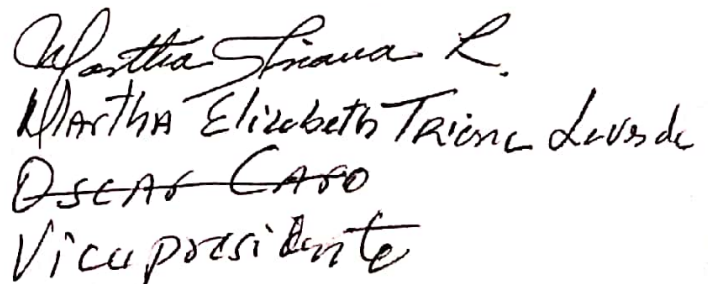 Martha Triana R.
Martha Elizabeth Triana
Oscar Caro
Vicepresidente